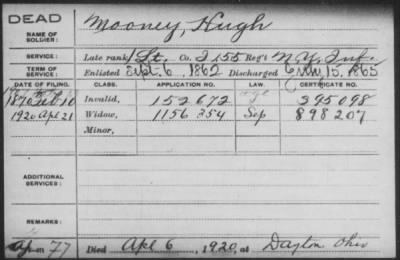 DEAD
NAME OF SOLDIER: Mooney, Hugh
SERVICE: Late rank 1 Lt. Co. I 155 Reg't N.Y. Inf.
TERM OF SERVICE: Enlisted Sept. 6, 1862 Discharged July 15, 1865
DATE OF FILING. CLASS. APPLICATION NO. LAW. CERTIFICATE NO.
1870 Feb 10 Invalid, 152672 295098
1920 Apl 21 Widow, 1156354 Sep 898207
Minor,
ADDITIONAL SERVICES:
REMARKS:
77 Died Apl 6, 1920, at Dayton Ohio